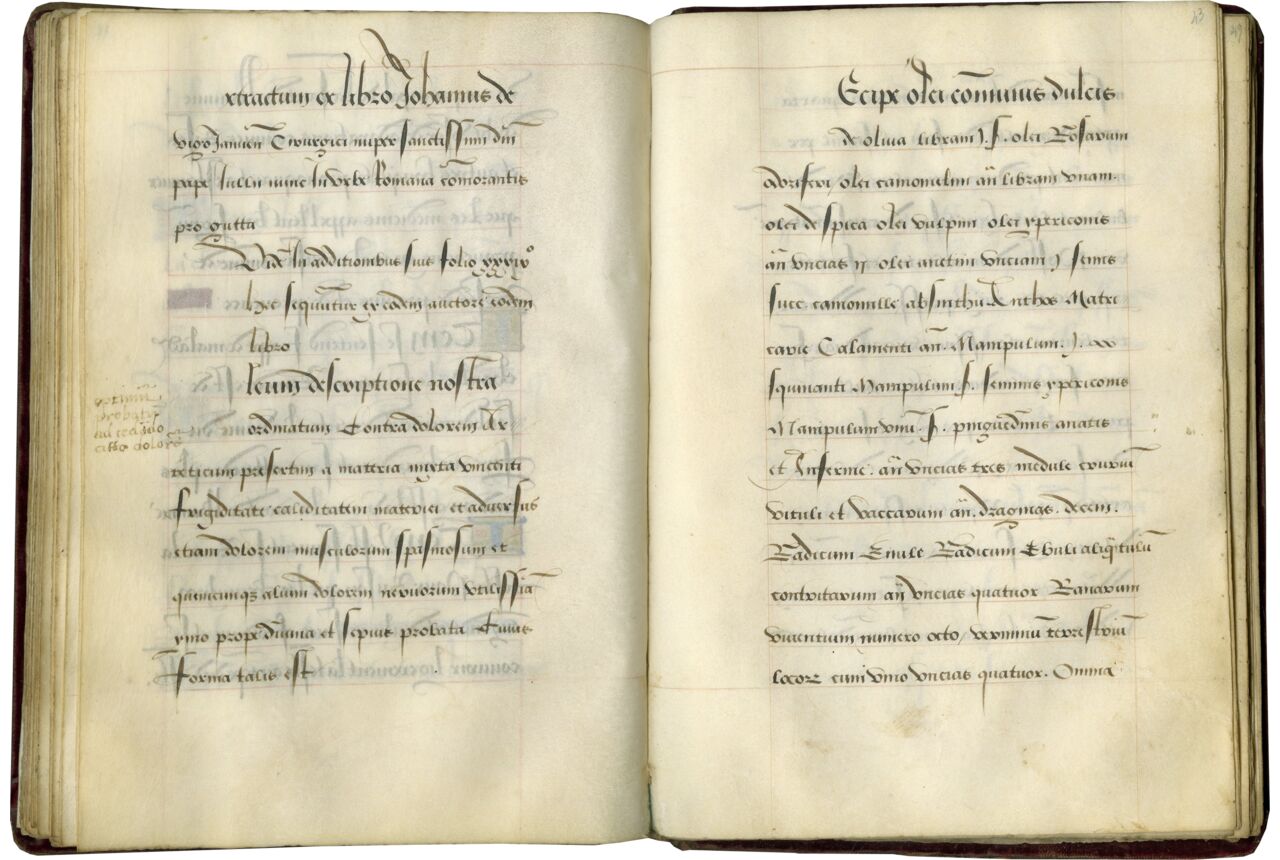 xtractum ex libro Johannis de
vigo Januen̄ Cirurgici nuper sanctissimi dn̄i
pape Iullii nunc In vrbe Romana com̄orantis
pro gutta
Vide In additionibus suis folio xxxix°
hec sequūtur ex eadem auctore eodem
libro
leum descriptione nostra
ordinatum Contra dolorem Ar
teticum presertim a materia mixta vincenti
frigiditate caliditatem materiei et adversus
etiam dolorem musculorum spasmosum et
quemcunqꝫ alium dolorem nervorum vtilissīa
ymo prope divina et sepius probata Cuius
Forma talis est
optimū
probatū
ad cedādo
cito dolorē
43
Ecipe olei com̄unis dulcis
de oliva libram j. s. olei Rosarum
odoriferi, olei camomelini an̄ libram vnam.
olei de spica olei vulpini olei ypericonis
an̄ vncias ij olei anetini vnciam j semis
succi camomille absinthii Anthos Matri
carie Calamenti an̄. Manipulum. j.
squinanti Manipulum s. seminis ypericonis
Manipulum vnū. s. pinguedinis anatis
et Anserine. an̄ vncias tres medule crurium
vituli et vaccarum an̄. dragmas. decem.
Radicum Enule Radicum Ebuli aliqͣtulū
contritarum an̄ vncias quatuor Ranarum
viventium numero octo, verminū terrestriū
locorꝝ cum vino vncias quatuor. Omnia